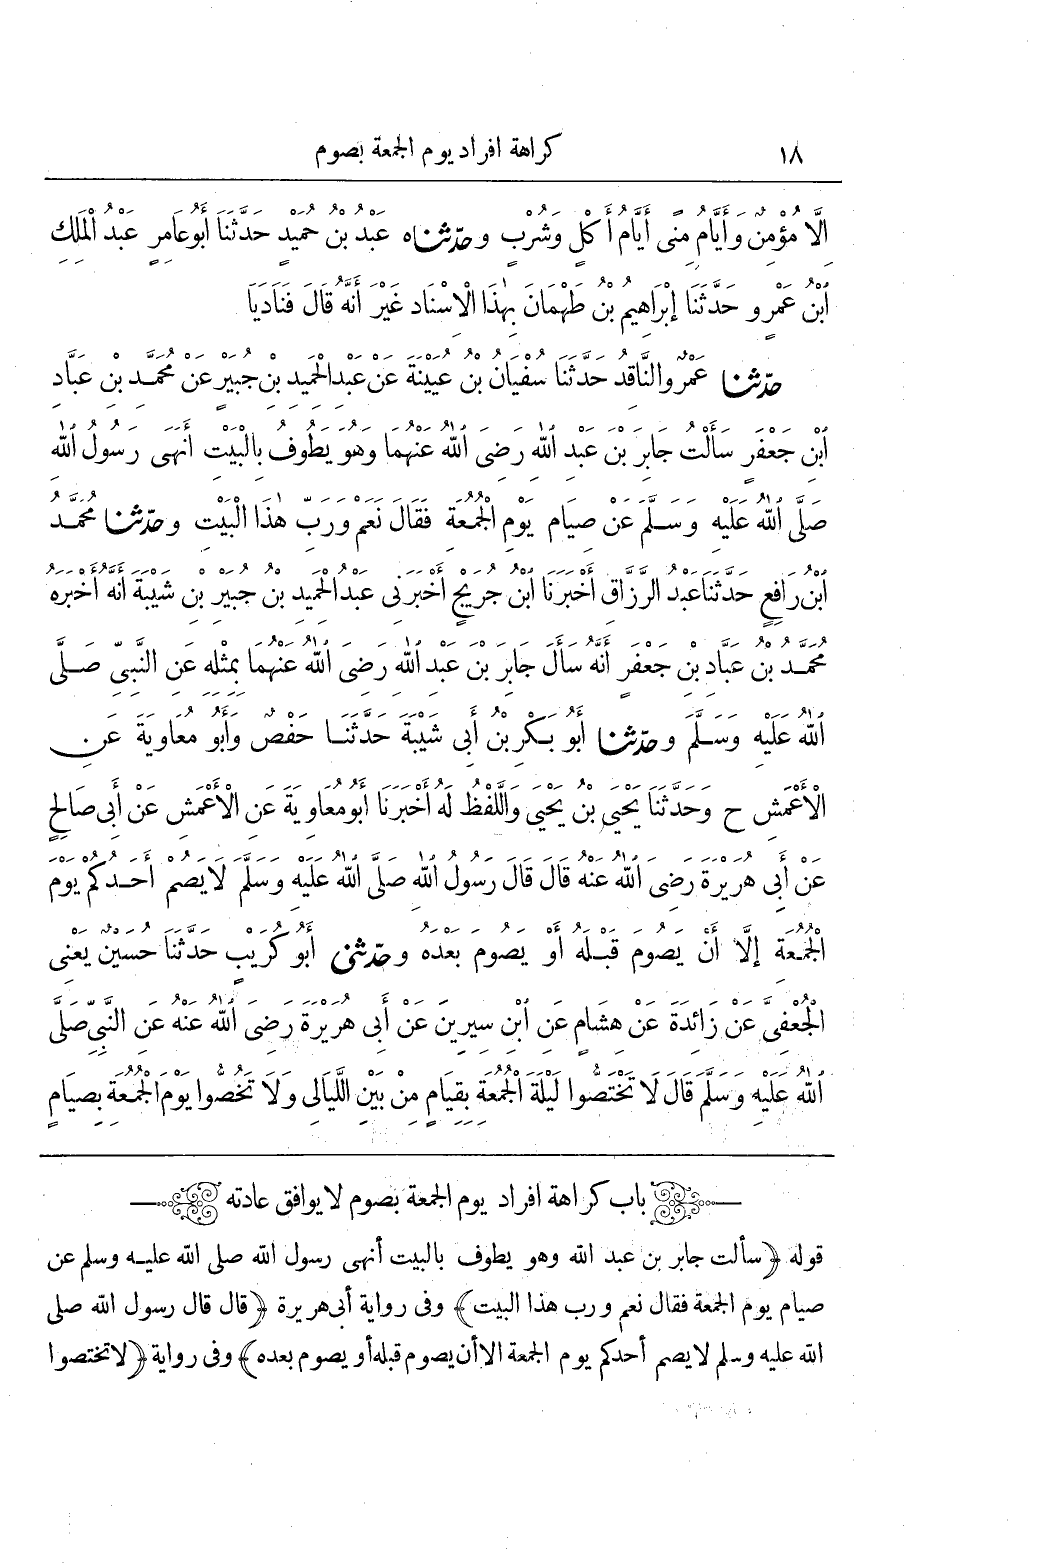 ١٨ كراهة افراد يوم الجمعة بصوم
إِلَّا مُؤْمِنٌ وَأَيَّامُ مِنًى أَيَّامُ أَكْلٍ وَشُرْبٍ وحدثناه عَبْدُ بْنُ حُمَيْدٍ حَدَّثَنَا أَبُو عَامِرٍ عَبْدُ الْمَلِكِ
ابْنُ عَمْرٍو حَدَّثَنَا إِبْرَاهِيمُ بْنُ طَهْمَانَ بِهٰذَا الْإِسْنَادِ غَيْرَ أَنَّهُ قَالَ فَنَادَيَا
حدثنا عَمْرٌو النَّاقِدُ حَدَّثَنَا سُفْيَانُ بْنُ عُيَيْنَةَ عَنْ عَبْدِ الْحَمِيدِ بْنِ جُبَيْرٍ عَنْ مُحَمَّدِ بْنِ عَبَّادِ
ابْنِ جَعْفَرٍ سَأَلْتُ جَابِرَ بْنَ عَبْدِ اللهِ رَضِيَ اللهُ عَنْهُمَا وَهُوَ يَطُوفُ بِالْبَيْتِ أَنَهَى رَسُولُ اللهِ
صَلَّى اللهُ عَلَيْهِ وَسَلَّمَ عَنْ صِيَامِ يَوْمِ الْجُمُعَةِ فَقَالَ نَعَمْ وَرَبِّ هٰذَا الْبَيْتِ وحدثنا مُحَمَّدُ
ابْنُ رَافِعٍ حَدَّثَنَا عَبْدُ الرَّزَّاقِ أَخْبَرَنَا ابْنُ جُرَيْجٍ أَخْبَرَنِي عَبْدُ الْحَمِيدِ بْنُ جُبَيْرِ بْنِ شَيْبَةَ أَنَّهُ أَخْبَرَهُ
مُحَمَّدُ بْنُ عَبَّادِ بْنِ جَعْفَرٍ أَنَّهُ سَأَلَ جَابِرَ بْنَ عَبْدِ اللهِ رَضِيَ اللهُ عَنْهُمَا بِمِثْلِهِ عَنِ النَّبِيِّ صَلَّى
اللهُ عَلَيْهِ وَسَلَّمَ وحدثنا أَبُو بَكْرِ بْنُ أَبِي شَيْبَةَ حَدَّثَنَا حَفْصٌ وَأَبُو مُعَاوِيَةَ عَنِ
الْأَعْمَشِ ح وَحَدَّثَنَا يَحْيَى بْنُ يَحْيَى وَاللَّفْظُ لَهُ أَخْبَرَنَا أَبُو مُعَاوِيَةَ عَنِ الْأَعْمَشِ عَنْ أَبِي صَالِحٍ
عَنْ أَبِي هُرَيْرَةَ رَضِيَ اللهُ عَنْهُ قَالَ قَالَ رَسُولُ اللهِ صَلَّى اللهُ عَلَيْهِ وَسَلَّمَ لَا يَصُمْ أَحَدُكُمْ يَوْمَ
الْجُمُعَةِ إِلَّا أَنْ يَصُومَ قَبْلَهُ أَوْ يَصُومَ بَعْدَهُ وحدثني أَبُو كُرَيْبٍ حَدَّثَنَا حُسَيْنٌ يَعْنِي
الْجُعْفِيَّ عَنْ زَائِدَةَ عَنْ هِشَامٍ عَنِ ابْنِ سِيرِينَ عَنْ أَبِي هُرَيْرَةَ رَضِيَ اللهُ عَنْهُ عَنِ النَّبِيِّ صَلَّى
اللهُ عَلَيْهِ وَسَلَّمَ قَالَ لَا تَخْتَصُّوا لَيْلَةَ الْجُمُعَةِ بِقِيَامٍ مِنْ بَيْنِ اللَّيَالِي وَلَا تَخُصُّوا يَوْمَ الْجُمُعَةِ بِصِيَامٍ
باب كراهة افراد يوم الجمعة بصوم لا يوافق عادته
قوله ﴿سألت جابر بن عبد الله وهو يطوف بالبيت أنهى رسول الله صلى الله عليه وسلم عن
صيام يوم الجمعة فقال نعم ورب هذا البيت﴾ وفى رواية أبى هريرة ﴿قال قال رسول الله صلى
الله عليه وسلم لا يصم أحدكم يوم الجمعة الا أن يصوم قبله أو يصوم بعده﴾ وفى رواية ﴿لا تختصوا